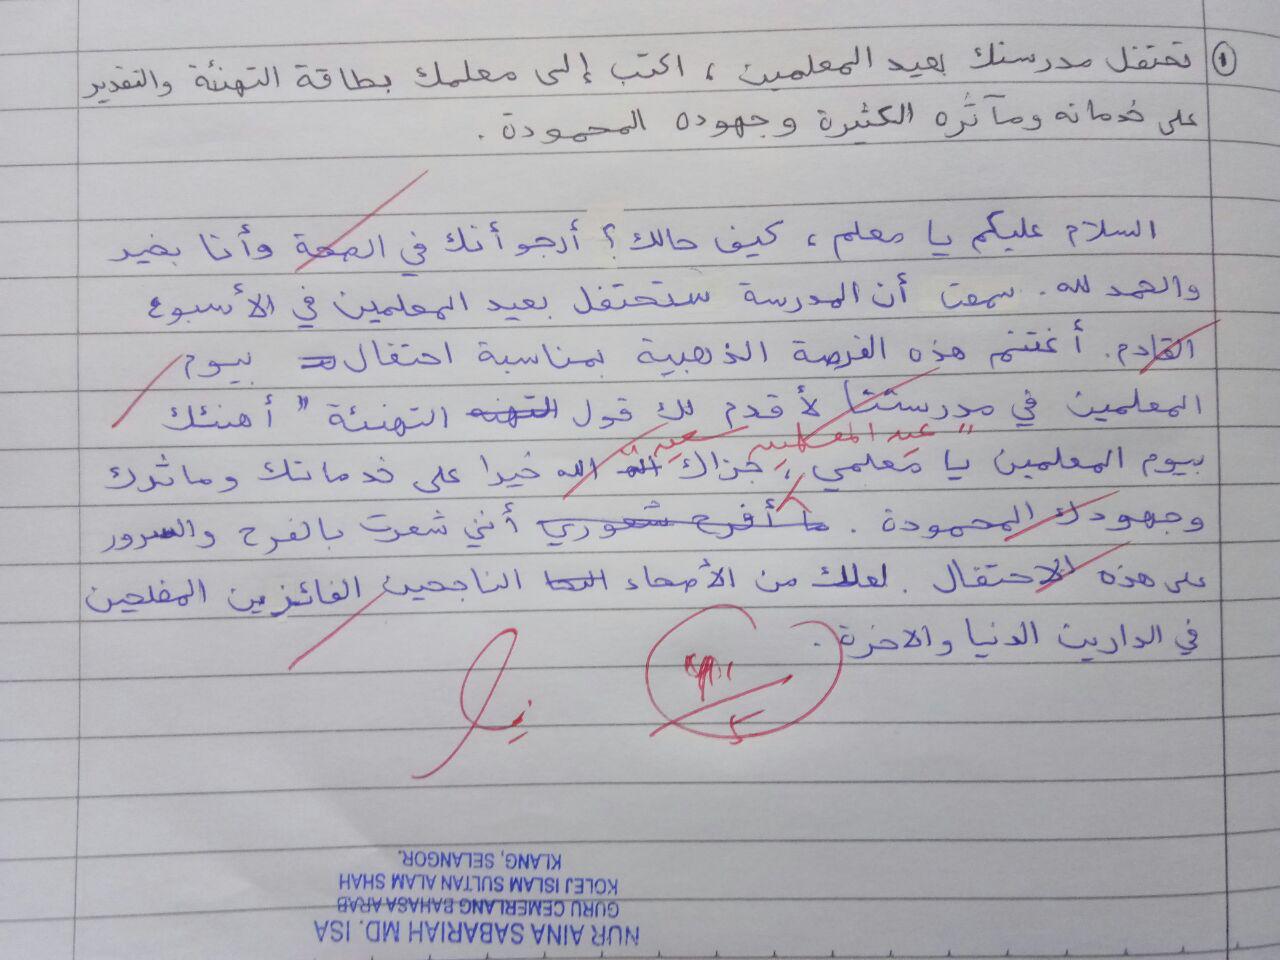 ① تحتفل مدرستك بعيد المعلمين ، اكتب إلى معلمك بطاقة التهنئة والتقدير
على خدماته ومآثره الكثيرة وجهوده المحمودة .
السلام عليكم يا معلم ، كيف حالك ؟ أرجو أنك في الصحة وأنا بخير
والحمد لله . سمعت أن المدرسة ستحتفل بعيد المعلمين في الأسبوع
القادم . أغتنم هذه الفرصة الذهبية بمناسبة احتفال بيوم
المعلمين في مدرستنا لأقدم لك قول التهنئة " أهنئك
" عيد المعلمين سعيد "
بيوم المعلمين يا معلمي ، جزاك الله خيرا على خدماتك وماثرك
وجهودك المحمودة . ما أفرح شعوري أنني شعرت بالفرح والسرور
على هذه الاحتفال . لعلك من الأصحاء الناجحين الفائزين المفلحين
في الدارين الدنيا والاخرة .
٥
NUR AINA SABARIAH MD. ISA
GURU CEMERLANG BAHASA ARAB
KOLEJ ISLAM SULTAN ALAM SHAH
KLANG, SELANGOR.